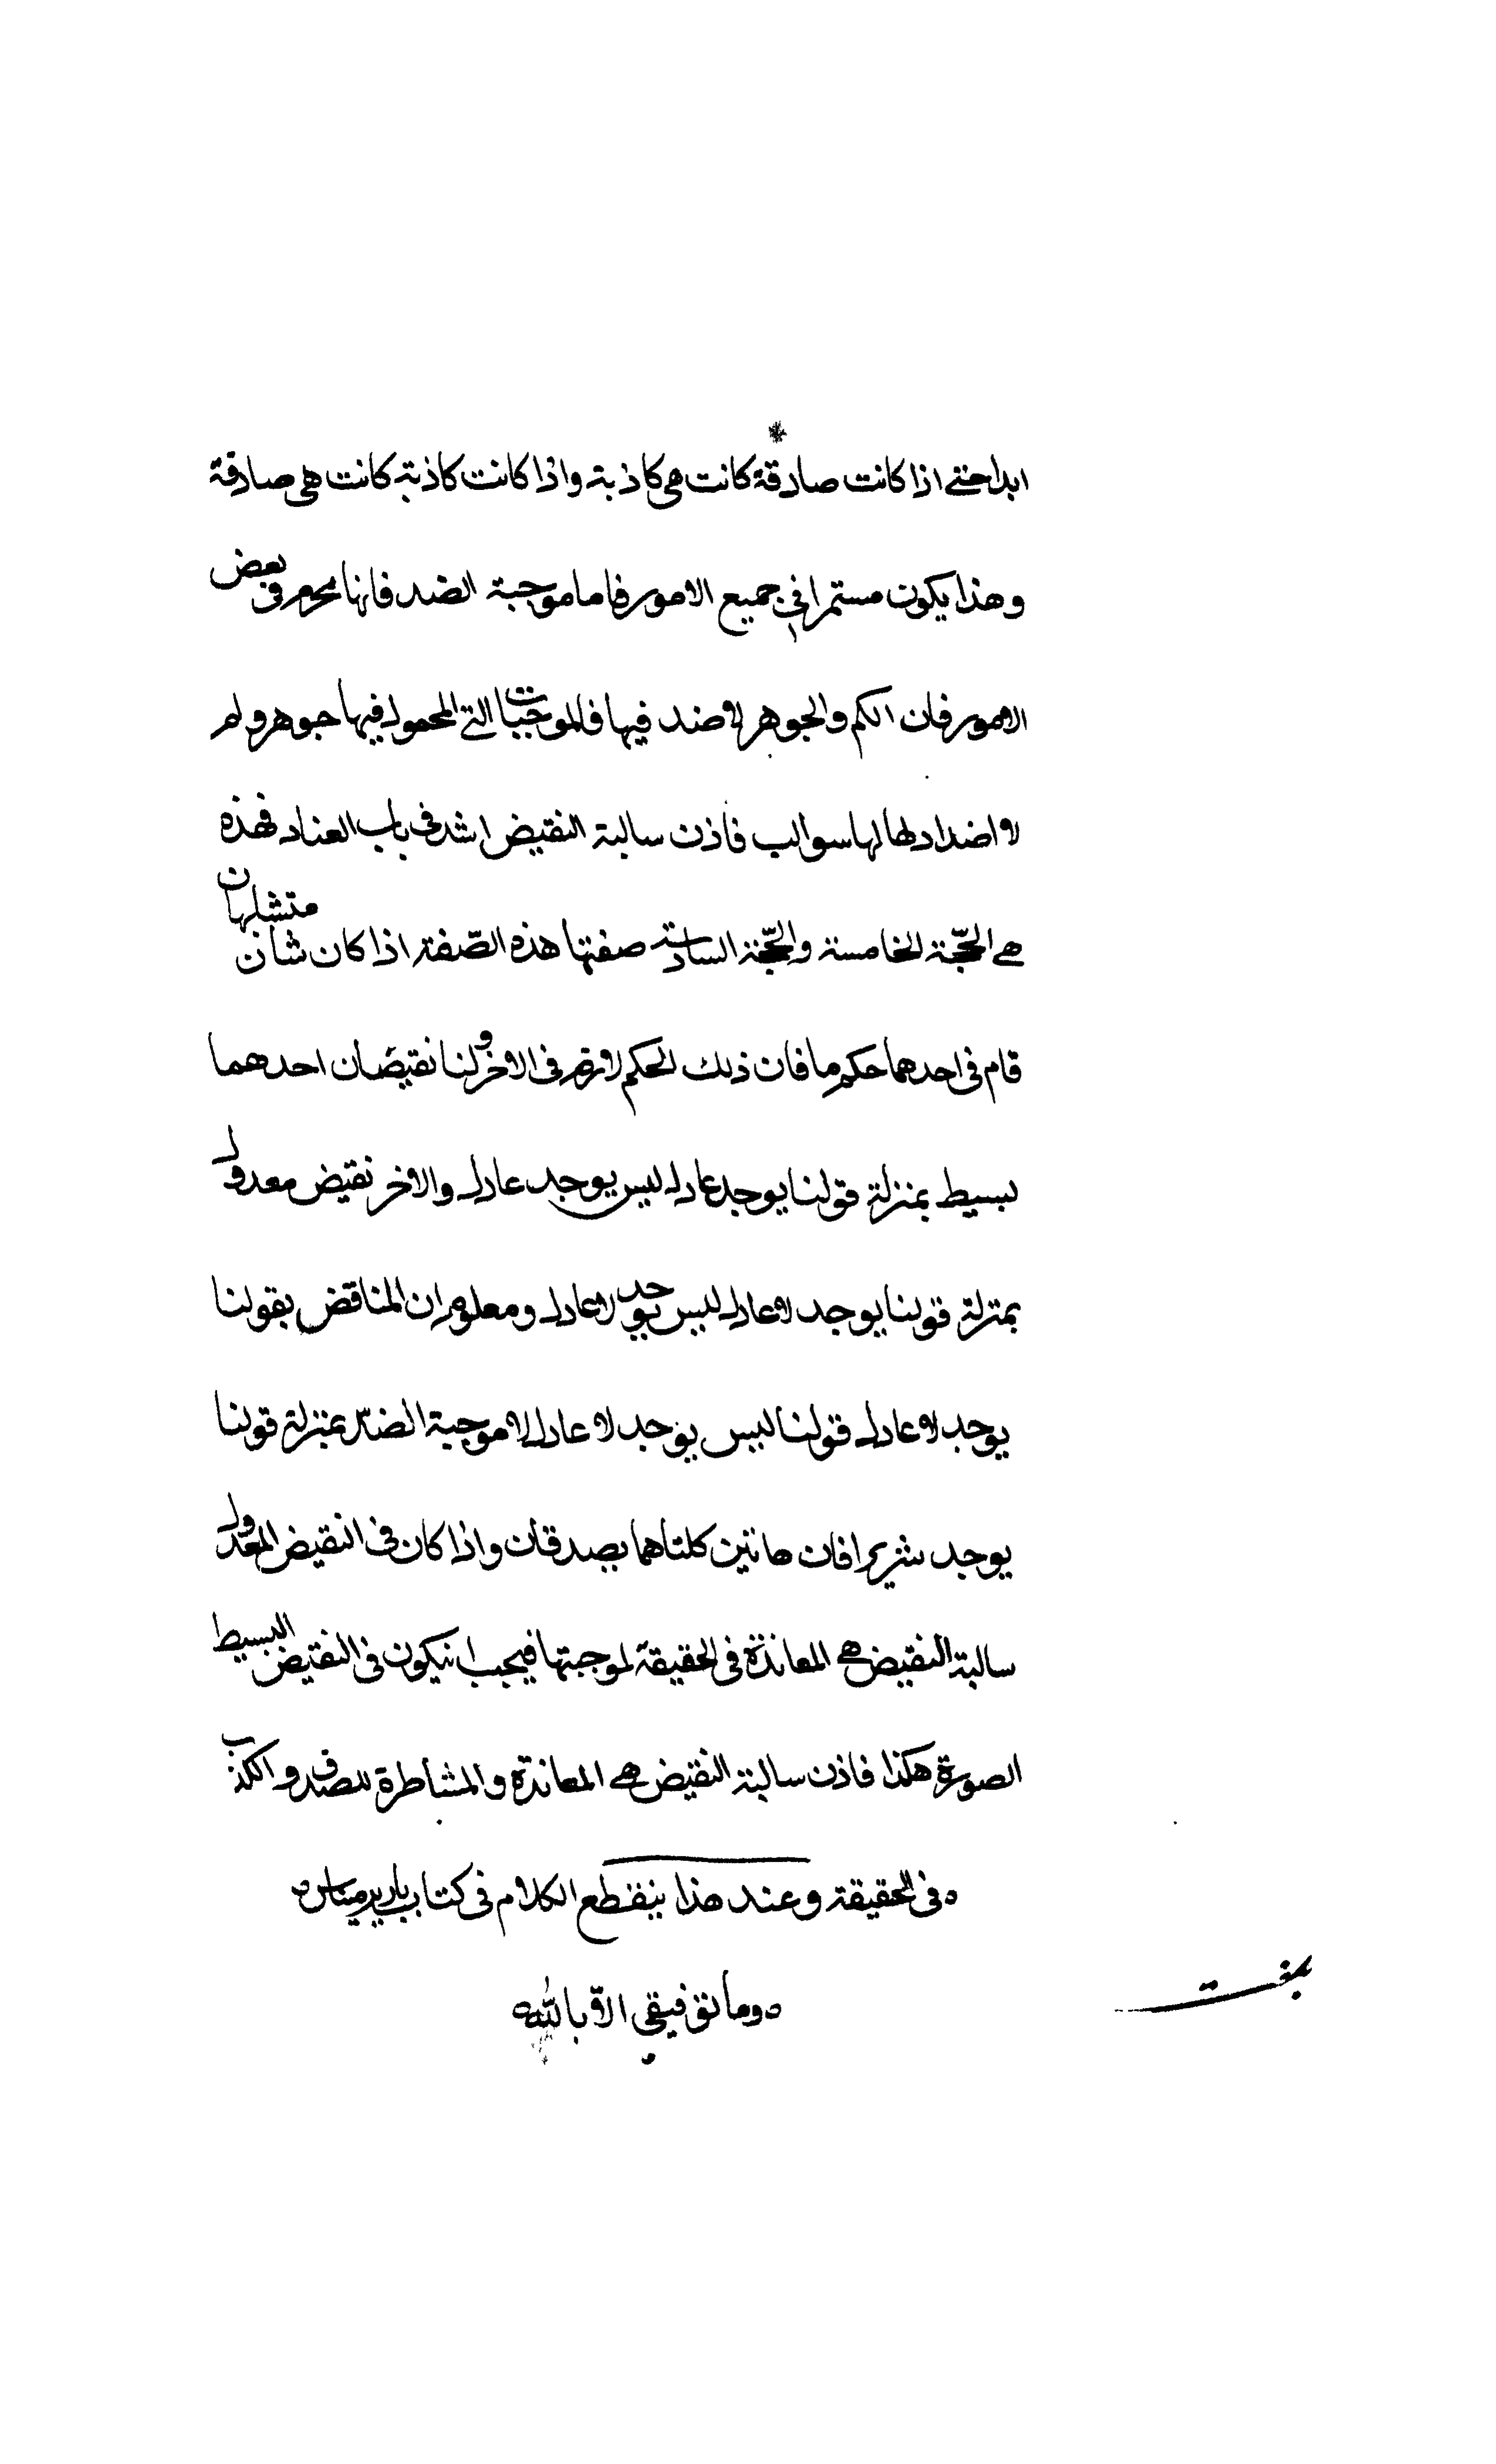 ابدا حتى اذا كانت صادقة كانت هى كاذبة واذا كانت كاذبة كانت هى صادقة
وهذا يكون مستمرا فى جميع الامور فاما موجبة الضد فانها فى بعض
الامور فان الكم والجوهر لا ضد فيها فالموجبات التى المحمول فيها جوهر ولم
لا اضداد لها لها سوالب فاذن سالبة النقيض اشد فى باب العناد فهذه
هى الحجّة الخامسة والحجّة السادسة صفتها هذه الصّفة اذا كان شأن متشابهان
قام فى احدهما حكم ما فان ذلك الحكم لازم فى الاخر ولنا نقيضان احدهما
بسيط بمنزلة قولنا يوجد عادل ليس يوجد عادل والاخر نقيض معدول
بمنزلة قولنا يوجد لا عادل ليس يوجد لا عادل ومعلوم ان المناقض بقولنا
يوجد لا عادل قولنا ليس يوجد لا عادل لا موجبة الضدّ بمنزلة قولنا
يوجد شريرا فان هاتين كلتاهما يصدقان واذا كان فى النقيض المعدول
سالبة النقيض هى المعاندة فى الحقيقة لموجبتها فيجب ان يكون فى النقيض البسيط
الصورة هكذا فاذن سالبة النقيض هى المعاندة والمشاطرة للصدق والكذب
ه فى الحقيقة وعند هذا ينقطع الكلام فى كتاب باريرميناس ه
ه وما توفيقى الاّ باللّه
تمت